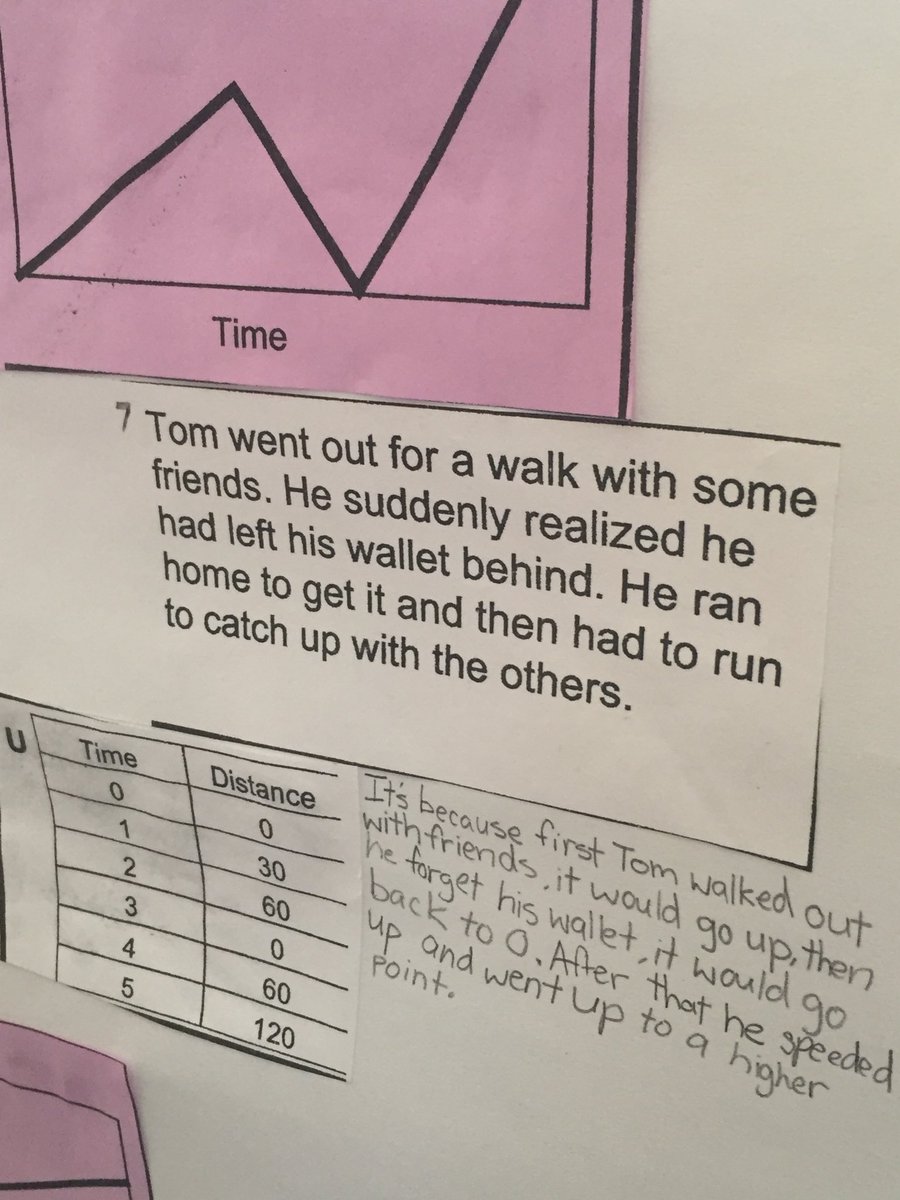 Time
7 Tom went out for a walk with some
friends. He suddenly realized he
had left his wallet behind. He ran
home to get it and then had to run
to catch up with the others.
U
Time Distance
0 0
1 30
2 60
3 0
4 60
5 120
It's because first Tom walked out
with friends, it would go up, then
he forget his wallet, it would go
back to 0. After that he speeded
up and went up to a higher
point.